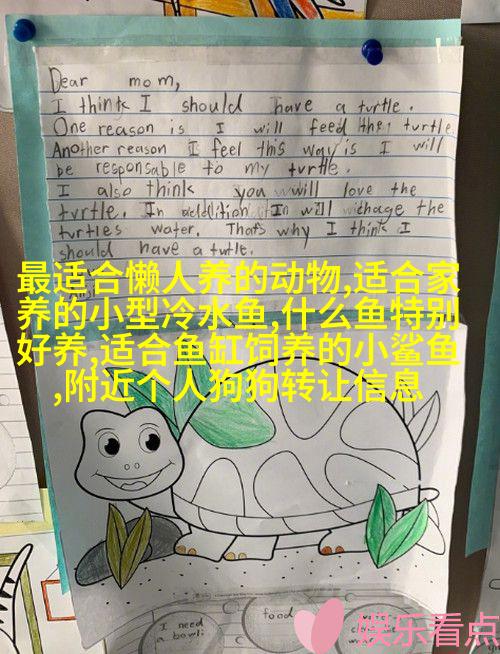 Dear mom,
I think I should have a turtle.
One reason is I will feed the turtle.
Another reason I feel this way is I will
be responsable to my turtle.
I also think you will love the
turtle. In addition I will chage the
turtles water. That's why I think I
should have a turtle.
最适合懒人养的动物,适合家
养的小型冷水鱼,什么鱼特别
好养,适合鱼缸饲养的小鲨鱼
,附近个人狗狗转让信息
I need
a bowl
food
娱乐看点